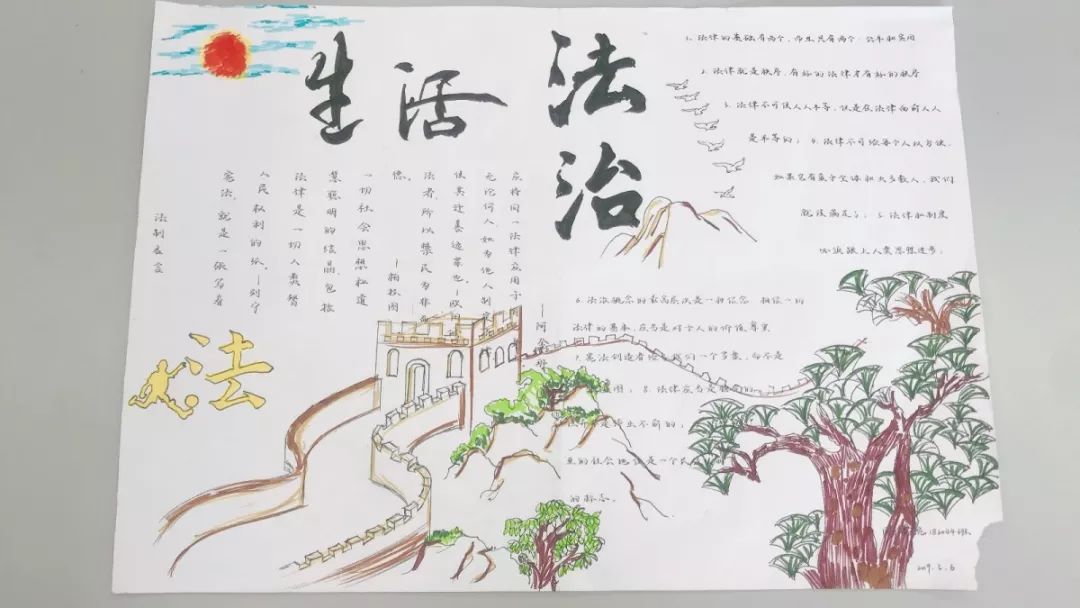 生活
法治
1、法律的基础有两个，而且只有两个：公平和实用
2、法律就是秩序，有好的法律才有好的秩序
3、法律不可使人人平等，但是在法律面前人人
是平等的；4、法律不可给每个人以方便，
如果它有益于全体和大多数人，我们
就该满足了；5、法律和制度
必须跟上人类思想进步。
6、法治概念的最高层次是一种信念，相信一切
法律的基本，应当是对个人的价值尊重
7、宪法创造者给我们一个
8、法律应当是稳定的
但不是停止不前的；
里的社会地位是一个
的标志。
应将同一法律实用于
无论何人，如为他人制定
使其迁善远罪也。—欧阳
法者，所以禁民为非而
德。
—柏拉图
一切社会思想和道
慧聪明的结晶，包括
法律是一切人类智
人民权利的纸。—列宁
宪法，就是一张写着
法制宣言
法
2019.5.6